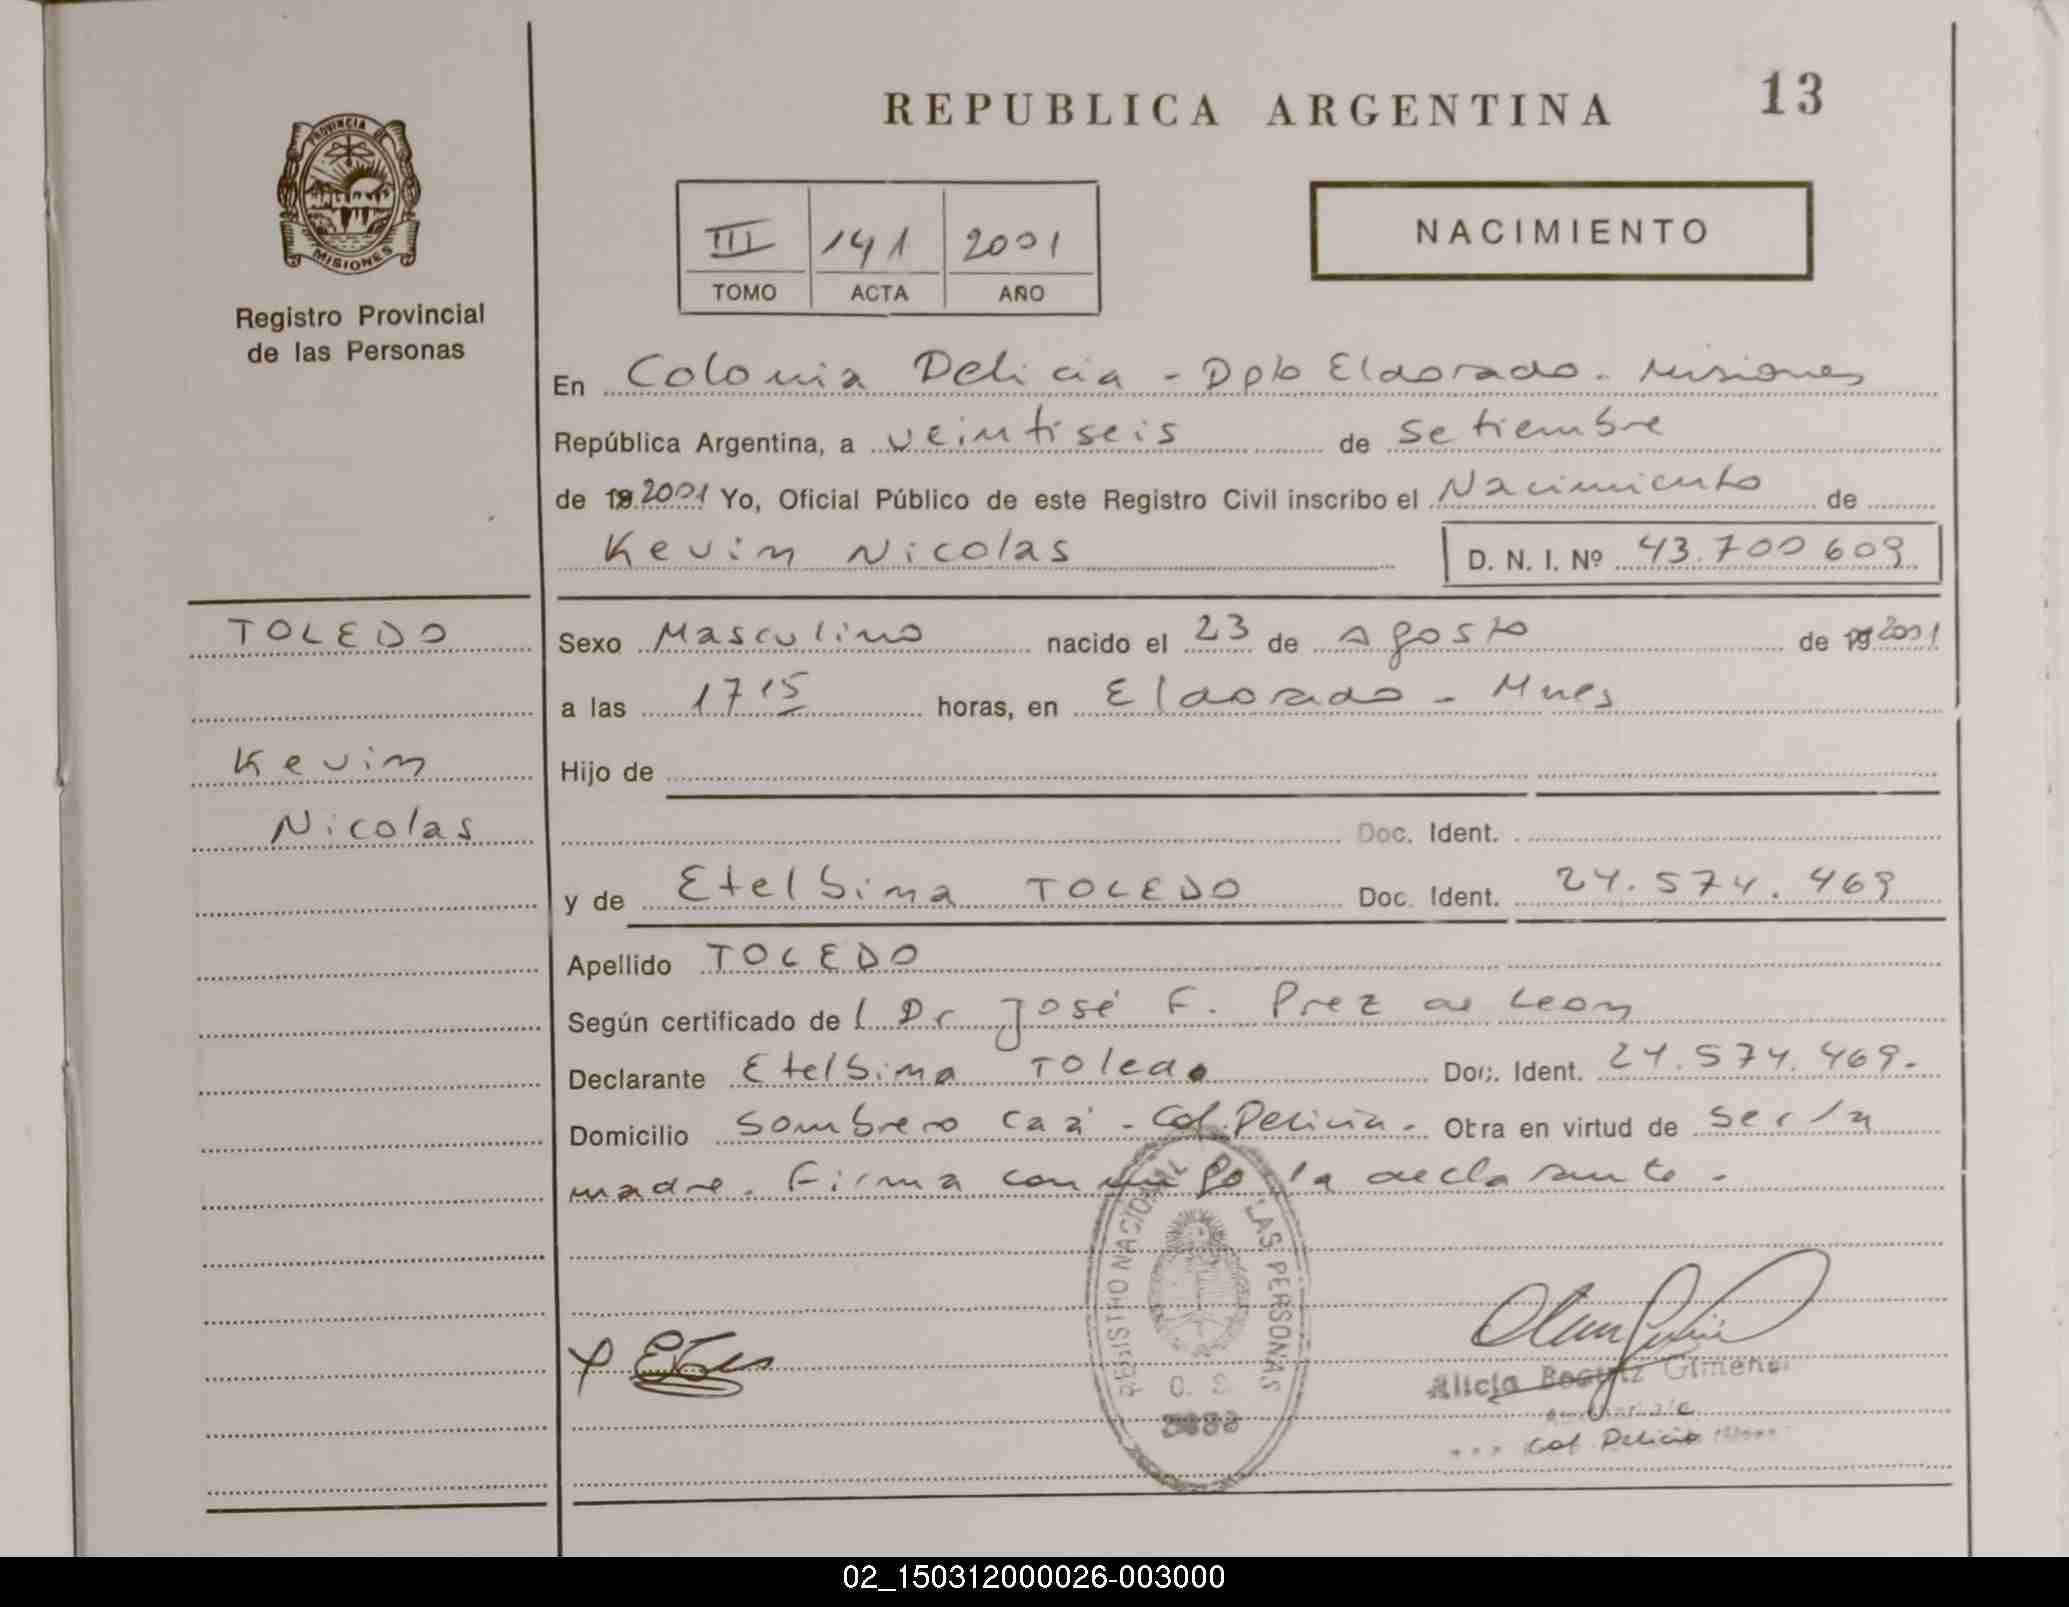 REPUBLICA ARGENTINA
13
PROVINCIA DE
MISIONES
Registro Provincial
de las Personas
III 141 2001
TOMO ACTA AÑO
NACIMIENTO
En Colonia Delicia - Dpto Eldorado. Misiones
República Argentina, a veintiseis de Setiembre
de 19 2001 Yo, Oficial Público de este Registro Civil inscribo el Nacimiento de
Kevin Nicolas D. N. I. Nº 43.700 609
TOLEDO
Kevin
Nicolas
Sexo Masculino nacido el 23 de Agosto de 19 2001
a las 17 15 horas, en Eldorado - Mnes
Hijo de
Doc. Ident.
y de Etelbina TOLEDO Doc. Ident. 24.574.469
Apellido TOLEDO
Según certificado del Dr José F. Prez de Leon
Declarante Etelbina Toledo Doc. Ident. 24.574.469.
Domicilio Sombrero Caá - Col. Delicia. Obra en virtud de ser la
madre. Firma conmigo la declarante.
REGISTRO NACIONAL LAS PERSONAS
Alicia Beatriz Gimenez
Col Delicia
02_150312000026-003000